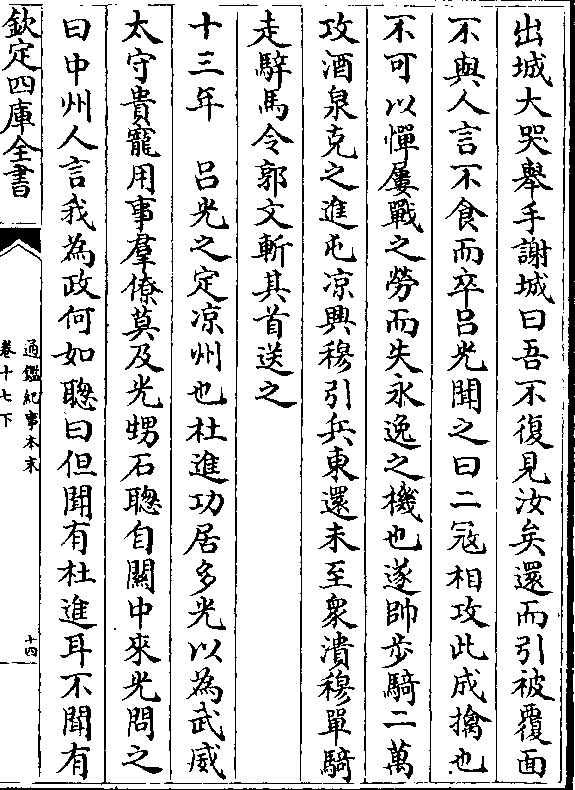 出城大哭舉手謝城曰吾不復見汝矣還而引被覆面
不與人言不食而卒吕光聞之曰二冦相攻此成擒也
不可以憚屢戰之勞而失永逸之機也遂帥步騎二萬
攻酒泉克之進屯凉興穆引兵東還未至衆潰穆單騎
走騂馬令郭文斬其首送之
十三年　吕光之定凉州也杜進功居多光以為武威
太守貴寵用事羣僚莫及光甥石聰自關中來光問之
曰中州人言我為政何如聰曰但聞有杜進耳不聞有
欽定四庫全書
通鑑紀事本末
卷十七下
十四